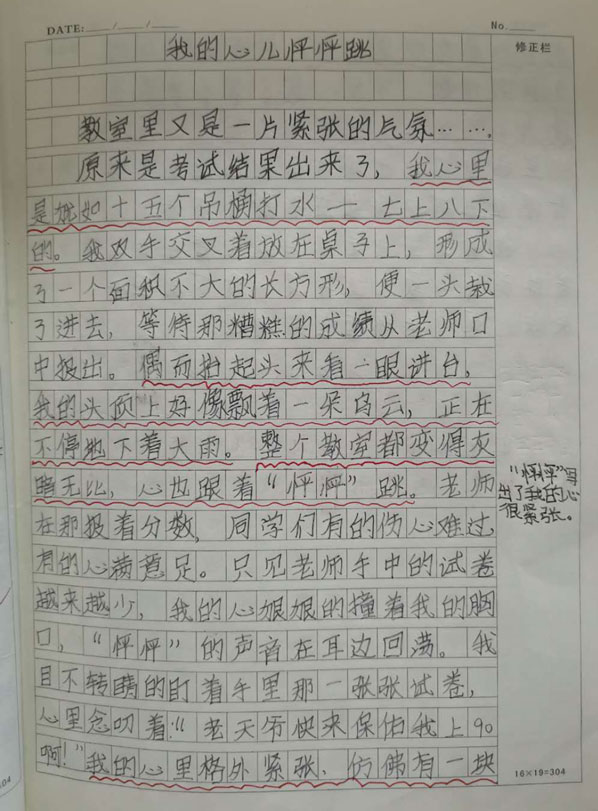 DATE: / /
No.
修正栏
我的心儿怦怦跳
教室里又是一片紧张的气氛……。
原来是考试结果出来了，我心里
是犹如十五个吊桶打水一七上八下
的。我双手交叉着放在桌子上，形成
了一个面积不大的长方形，便一头栽
了进去，等待那糟糕的成绩从老师口
中报出。偶而抬起头来看一眼讲台，
我的头顶上好像飘着一朵乌云，正在
不停地下着大雨。整个教室都变得灰
暗无比，心也跟着“怦怦”跳。老师
在那报着分数，同学们有的伤心难过，
有的心满意足。只见老师手中的试卷
越来越少，我的心狠狠的撞着我的胸
口，“怦怦”的声音在耳边回荡。我
目不转睛的盯着手里那一张张试卷，
心里念叨着：“老天爷快来保佑我上90
啊！”我的心里格外紧张，仿佛有一块
“怦怦”写
出了我的心
很紧张。
16×19=304